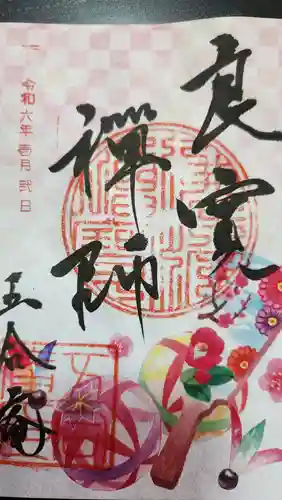 良寛
禪師
五合庵
令和六年壱月弐日